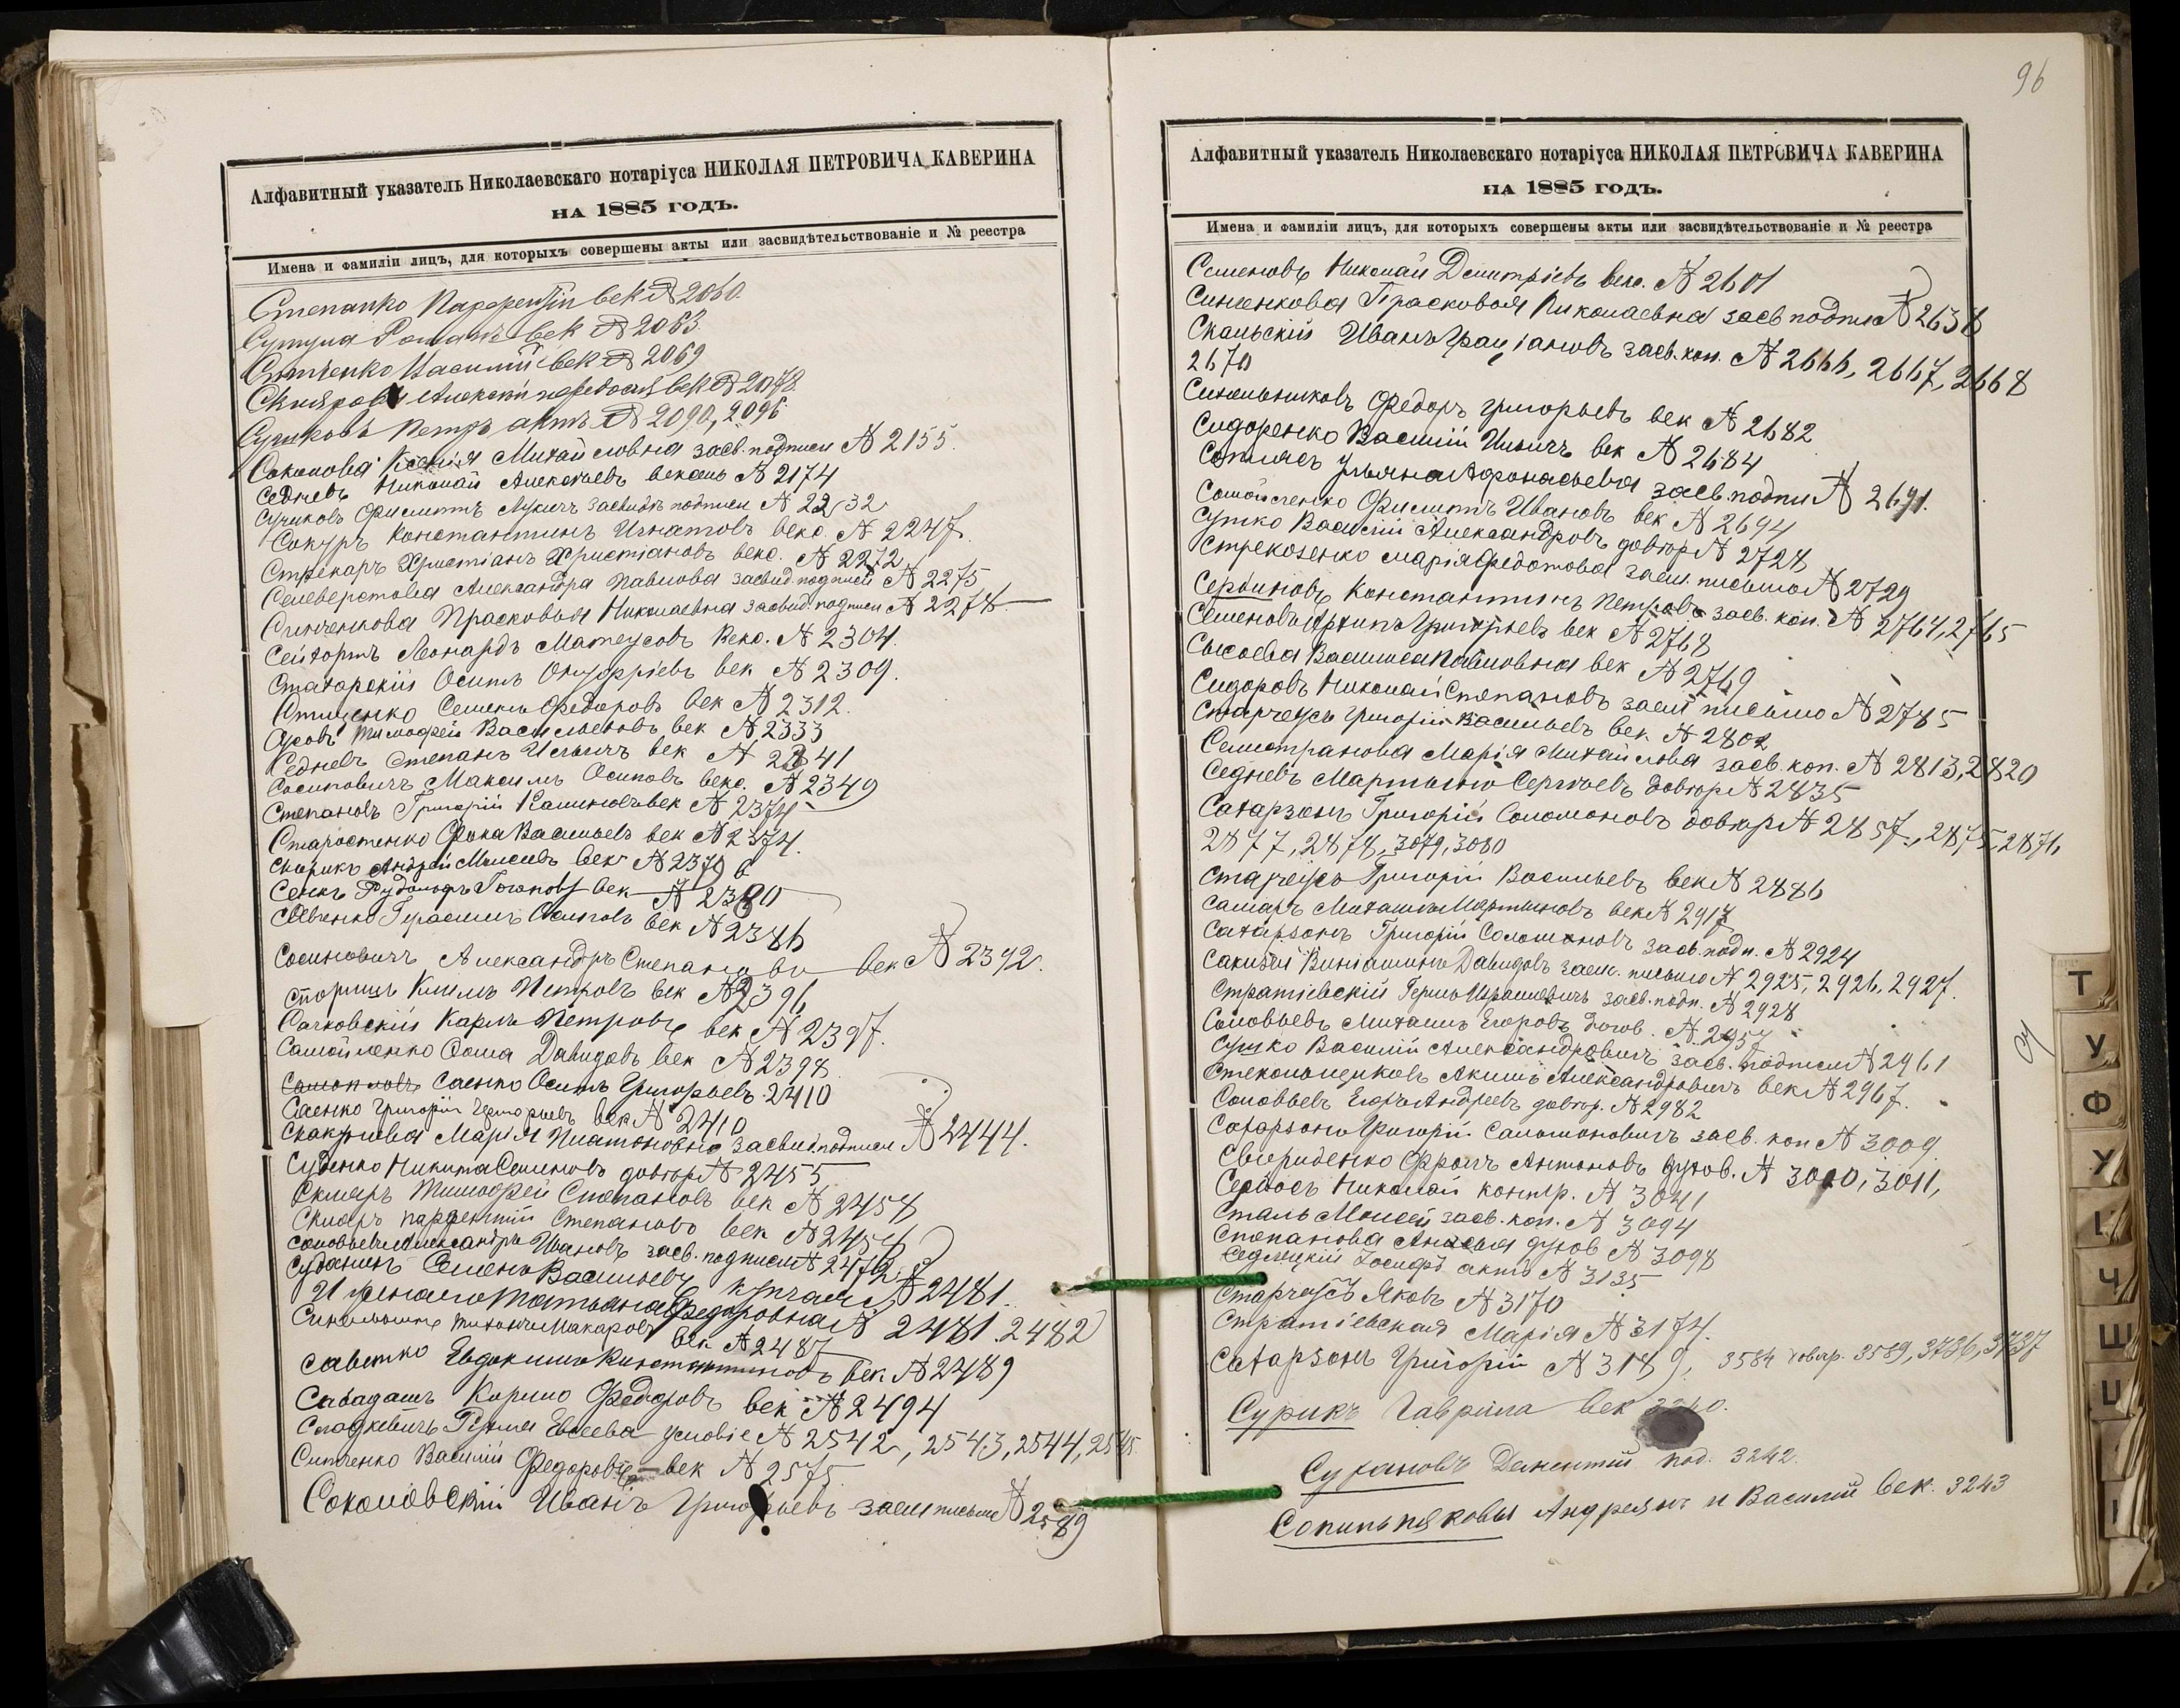 Алфавитный указатель Николаевскаго нотаріуса НИКОЛАЯ ПЕТРОВИЧА КАВЕРИНА
НА 1885 ГОДЪ.
Имена и фамиліи лицъ, для которыхъ совершены акты или засвидѣтельствованіе и № реестра
Степанко Парфентій век № 2060.
Романъ век № 2063.
Василій век № 2069
век № 2078.
Сушковъ Петръ актъ № 2090, 2096.
Соколова Ксенія Михайловна засв. подписи № 2155.
Седневъ Николай Алексѣевъ № 2174
Сучковъ Филиппъ Лукичъ засвидѣ подписи № 2232
Сокуръ Константинъ Игнатовъ векс. № 2247.
Стрекаръ Христіанъ Христіановъ векс. № 2272
Селеверстова Александра Павлова засвид. подписи № 2275
Синченкова Прасковья Николаевна засвид. подписи № 2278
Сейтортъ Леонардъ Матеусовъ векс. № 2304.
Статорскій Осипъ Онуфріевъ век № 2309.
Стиценко Семенъ Федоровъ век № 2312.
Суровъ Тимофей Васильевъ век № 2333
Седневъ Степанъ Ильичъ век № 2341
Сосиновичъ Максимъ Осиповъ векс. № 2349
Степановъ Григорій век № 2374
Старостенко Фока Васильевъ век № 2374.
Свирикъ Андрей Моисеевъ век № 2379
Сенкъ Рудольфъ век № 2380
Севченко Герасимъ Осиповъ век № 2386
Сосиновичъ Александръ Степановъ век № 2392.
Сторишъ Климъ Петровъ век № 2396
Сачковскій Карлъ Петровъ век № 2397.
Самойленко Фома Давидовъ век № 2398
Саенко Осипъ Григорьевъ 2410
Саенко Григорій Григорьевъ век № 2410
Скакунова Марія Платоновна засвид. подписи № 2444.
Суденко Никита Семеновъ договор № 2455
Скляръ Тимофей Степановъ век № 2458
Скляръ Парфентій Степановъ век № 2458
Соловьевъ Александръ Ивановъ засв. подписи № 2472
Судакинъ Семенъ Васильевъ купчая № 2481.
Татьяна Федоровна № 2481. 2482
Тихонъ Макаровъ век № 2487
Саветко Евдокимъ Константиновъ век № 2489
Сабадашъ Корнило Федоровъ век № 2494
Сладкевичъ Евсеева условіе № 2542, 2543, 2544, 2545
Ситченко Василій Федоровъ век № 2575
Соколовскій Иванъ Григорьевъ заем письмо № 2589
96
Алфавитный указатель Николаевскаго нотаріуса НИКОЛАЯ ПЕТРОВИЧА КАВЕРИНА
НА 1885 ГОДЪ.
Имена и фамиліи лицъ, для которыхъ совершены акты или засвидѣтельствованіе и № реестра
Семеновъ Николай Дмитріевъ векс. № 2601
Синченкова Прасковья Николаевна засв подписи № 2638
Скальскій Иванъ Граціановъ засв. коп. № 2666, 2667, 2668
2670
Синельниковъ Федоръ Григорьевъ век № 2682
Сидоренко Василій Ильичъ век № 2684
Ульяна Афонасьева засв. подпи № 2691.
Самойленко Филиппъ Ивановъ век № 2694
Сушко Василій Александровъ договор № 2728
Стрекозенко Марія Федотова заем. письмо № 2729
Сербиновъ Константинъ Петровъ засв. коп. № 2764, 2765
Семеновъ Архипъ Григорьевъ век № 2768
Сысоева Василиса Павловна век № 2769
Сидоровъ Николай Степановъ заем письмо № 2785
Старчеусъ Григорій Васильевъ век № 2802
Селистранова Марія Михайлова засв. коп. № 2813, 2820
Седневъ Мартынъ Сергѣевъ договор № 2835
Сатарзонъ Григорій Соломоновъ договор № 2857, 2875, 2876
2877, 2878, 3079, 3080
Старчеусъ Григорій Васильевъ век № 2886
Самаръ Михаилъ Мартыновъ век № 2917
Сатарзонъ Григорій Соломоновъ засв. подп. № 2924
Веніаминъ Давидовъ заем. письмо № 2925, 2926, 2927.
Стратіевскій Герш Израилевичъ засв. подп. № 2928
Соловьевъ Михаилъ Егоровъ догов. № 2957
Сушко Василій Александровичъ засв. подписи № 2961
Стекольщиковъ Акимъ Александровичъ век № 2967.
Соловьевъ Егоръ Андреевъ договор. № 2982
Сатарзонъ Григорій Саломоновичъ засв. коп № 3009.
Свириденко Фролъ Антоновъ духов. № 3010, 3011,
Николай контр. № 3041
Сталь Моисей засв. коп. № 3094
Степанова духов № 3098
Седлецкій Іосифъ актъ № 3135
Старчеусъ Яковъ № 3170
Стратіевская Марія № 3174.
Сатарзонъ Григорій № 3189, 3584 договр. 3589, 3736, 3737
Сурикъ Гаврила век 3240.
Сухановъ Дементій под. 3242.
Сопильняковы Андреянъ и Василій век. 3243
Т
У
Ф
Х
Ц
Ч
Ш
Щ